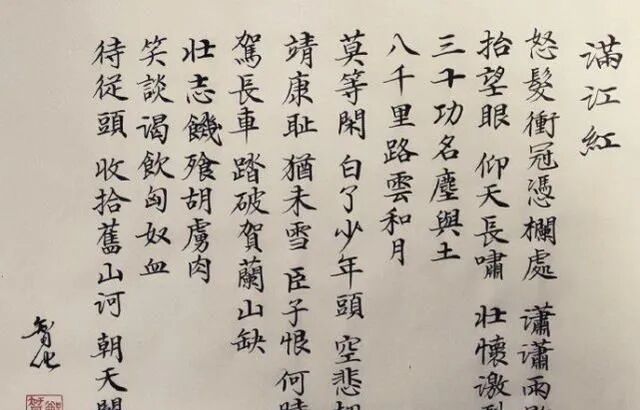 滿江紅
怒髮衝冠憑欄處 瀟瀟雨
抬望眼 仰天長嘯 壯懷激
三十功名塵與土
八千里路雲和月
莫等閑 白了少年頭 空悲
靖康耻 猶未雪 臣子恨 何時
駕長車 踏破賀蘭山缺
壯志饑飱胡虜肉
笑談渴飲匈奴血
待從頭 收拾舊山河 朝天闕